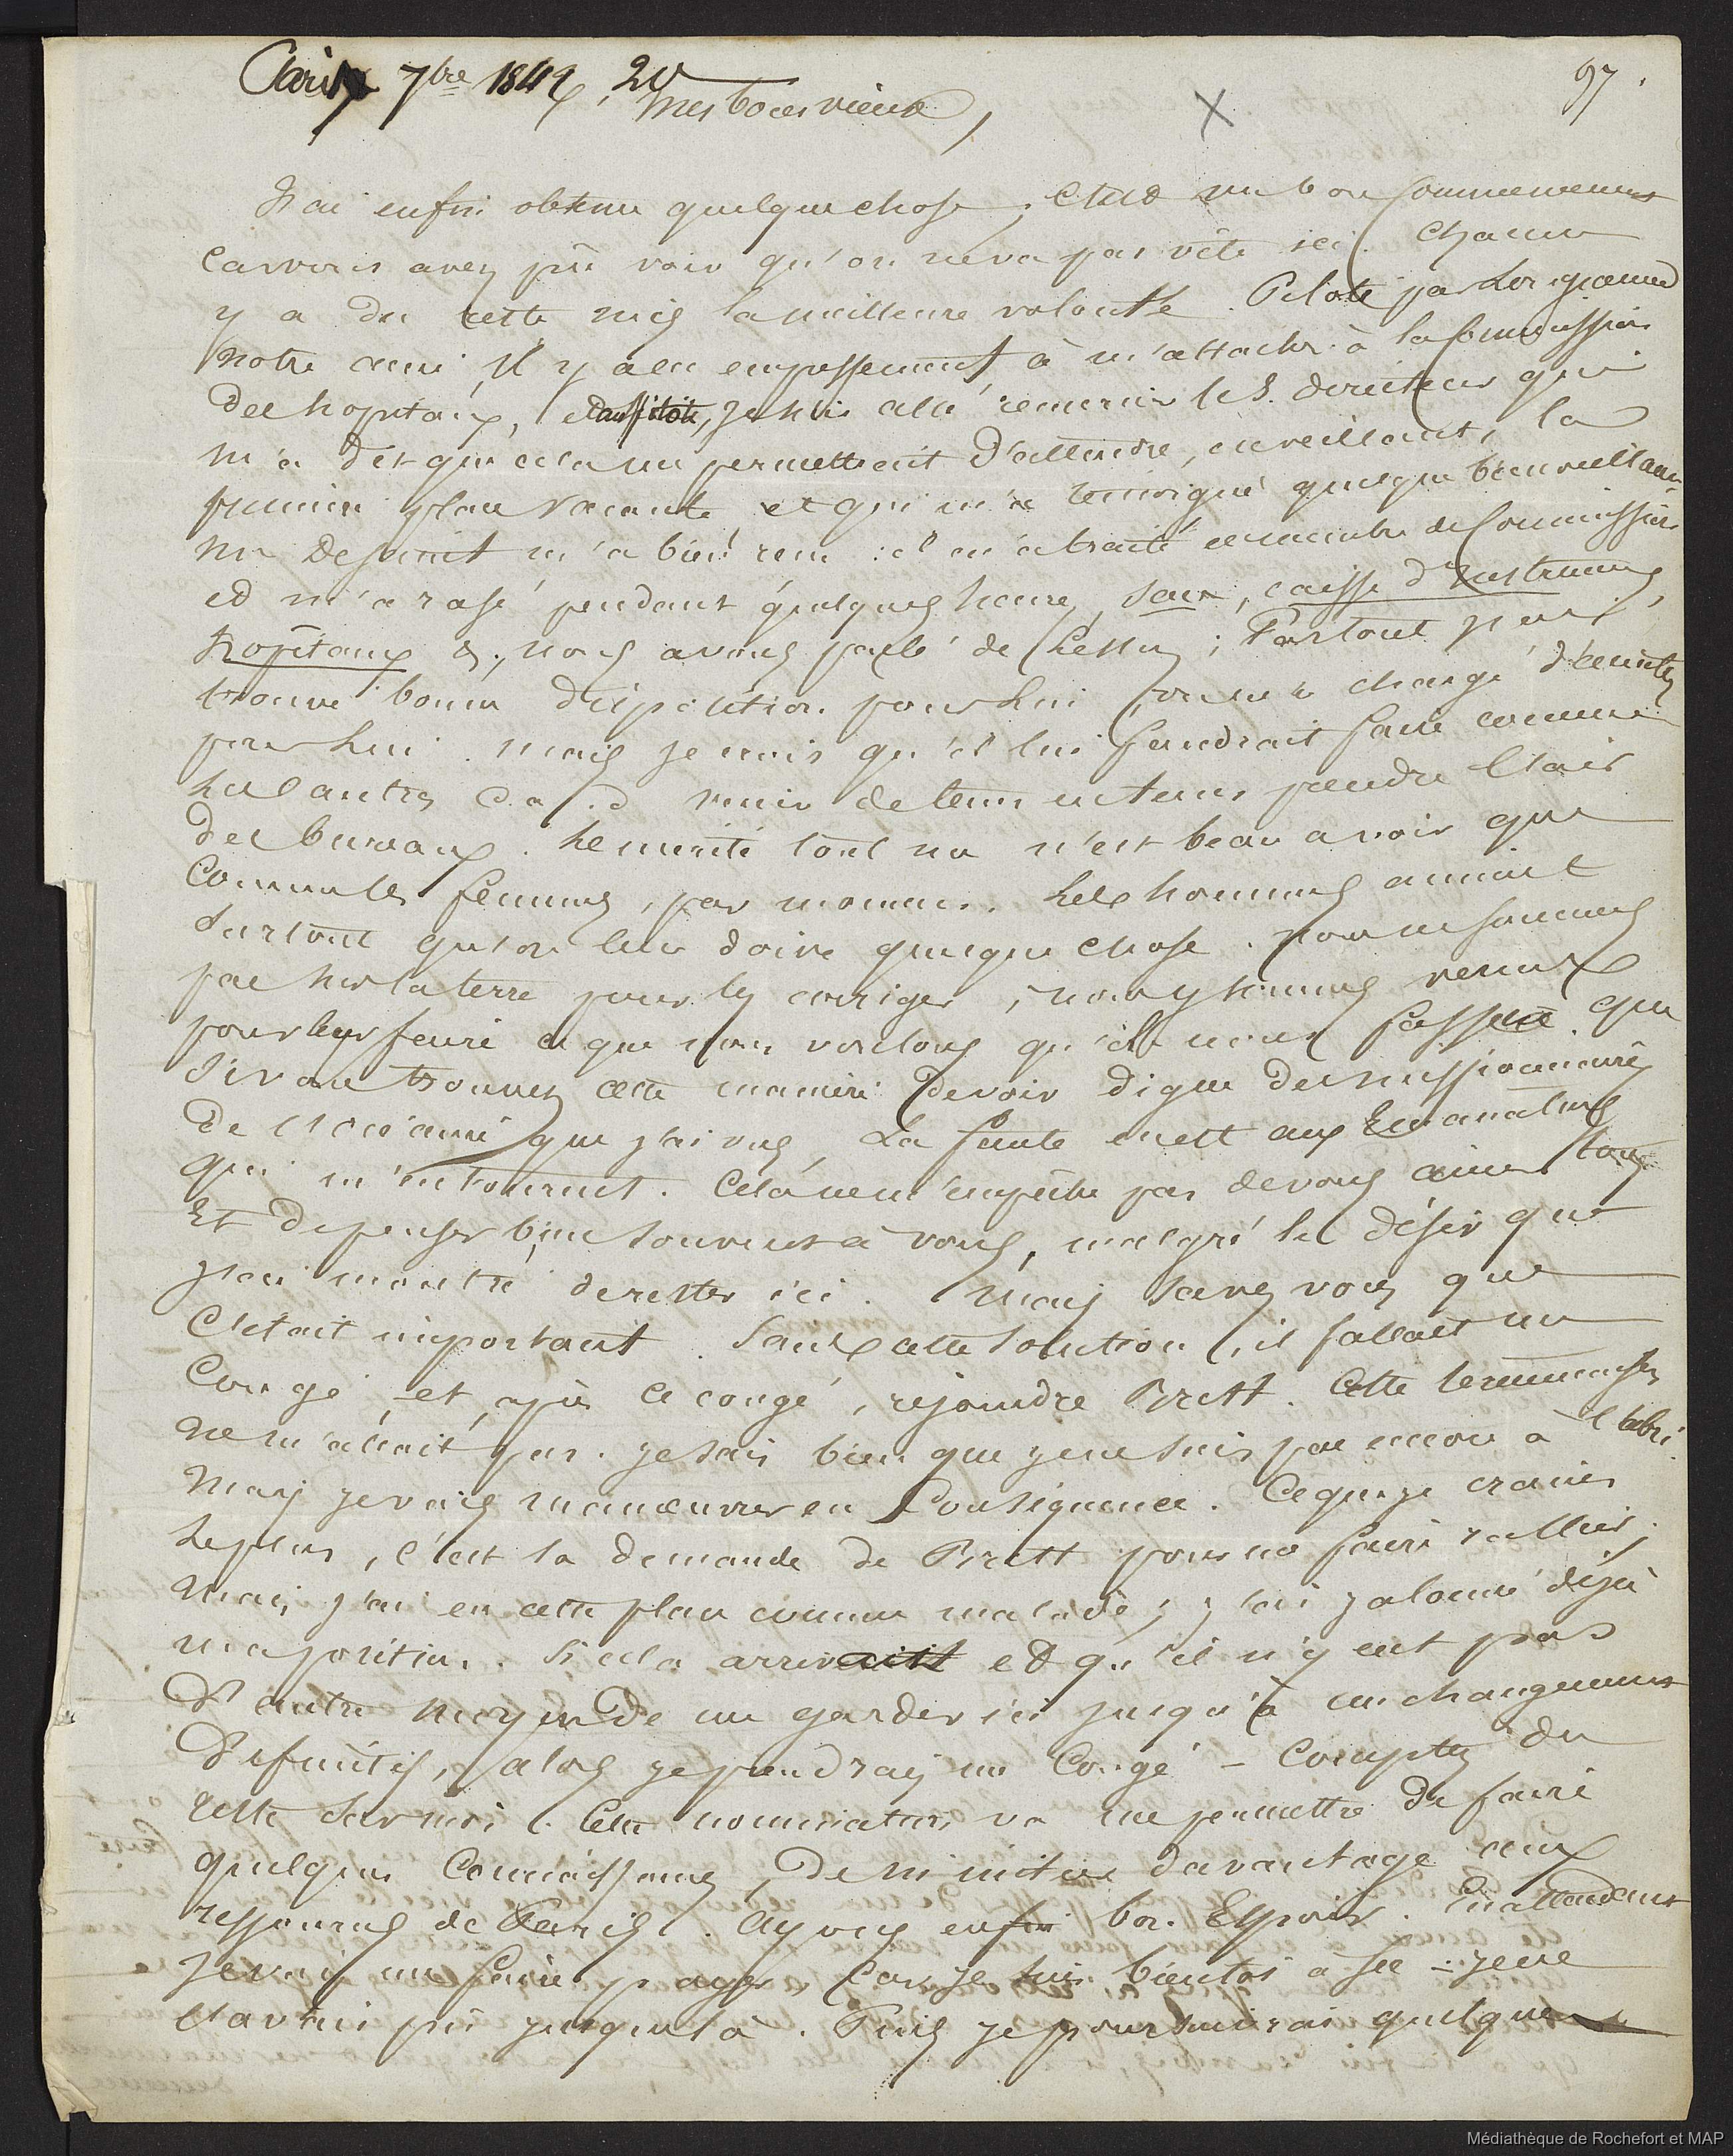 Paris 7bre 1849, 20
97.
mes bons vieux,
J'ai enfin obtenu quelque chose; c'est un bon commencement
car vous avez pu voir qu'on ne va pas vite ici. Chacun
y a du reste mis la meilleure volonté. Piloté par
notre ami, il y a eu empressement à m'attacher à la commission
des hopitaux, et aussitôt, je suis allé remercier le S. directeur qui
m'a dit que cela me permettrait d'attendre, en veillant, la
première place vacante et qui m'a témoigné quelque bienveillance
m'a bien reçu: il m'a traité en membre de Commission
et m'a rasé pendant quelques heures, caisse d'instruments,
hopitaux &; nous avons parlé de Lesson; Partout j'ai
trouvé bonne disposition pour lui, on m'a chargé d'amitiés
pour lui. mais je crois qu'il lui faudrait faire comme
les autres c.a.d venir de tems en tems prendre l'air
des bureaux. Le mérite tout nu n'est beau a voir que
comme les femmes, par momens. Les hommes aiment
surtout qu'on leur doive quelque chose. nous ne sommes
pas sur la terre pour les corriger; nous y sommes venus
pour leur faire ce que nous voulons qu'ils nous fassent. que
si vous trouvez cette manière de voir digne des missionnaires
de l'océanie que j'ai vus, la faute en est aux
qui m'entourent. Cela ne m'empêche pas de vous aimer tous
Et de penser bien souvent à vous, malgré le désir que
j'ai montré de rester ici. mais savez vous que
c'était important. Sans cette solution, il fallait un
congé, et, après ce congé, rejoindre Brest. Cette
ne m'allait pas. je sais bien que je ne suis pas encore à l'abri.
mais je vais manœuvrer en conséquence. Ce que je crains
le plus, c'est la demande de Brest pour me faire rallier;
mais j'ai eu cette place comme malade; j'ai jalonné déjà
ma position. Si cela arrivait et qu'il n'y eut pas
d'autre moyen de me garder ici jusqu'à un changement
définitif, alors je prendrais un congé – comptez du
reste sur moi. Cette nomination va me permettre de faire
quelques connaissances, de m'initier davantage aux
ressources de Paris. Ayons enfin bon Espoir. En attendant
je vais me faire payer, car je suis bientôt à sec – je ne
l'avais pu jusques là. Puis je poursuivrai quelques
Médiathèque de Rochefort et MAP